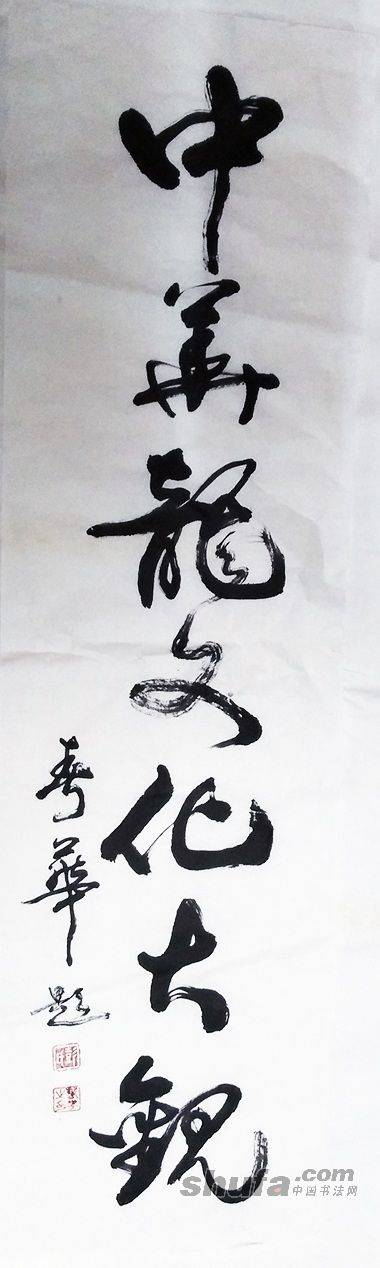 中華龍文化大觀
春華題
shufa.com
中国书法网